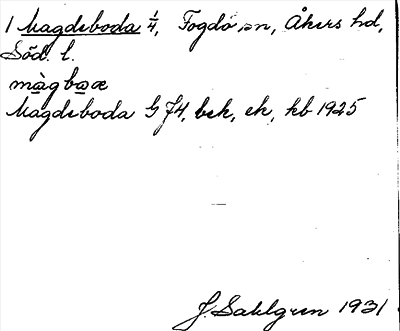 1 Magdeboda 1/4, Fogdö sn, Åkers hd,
Söd. l.
màgboæ
Magdeboda G J4, bek, ek, kb 1925
J. Sahlgren 1931